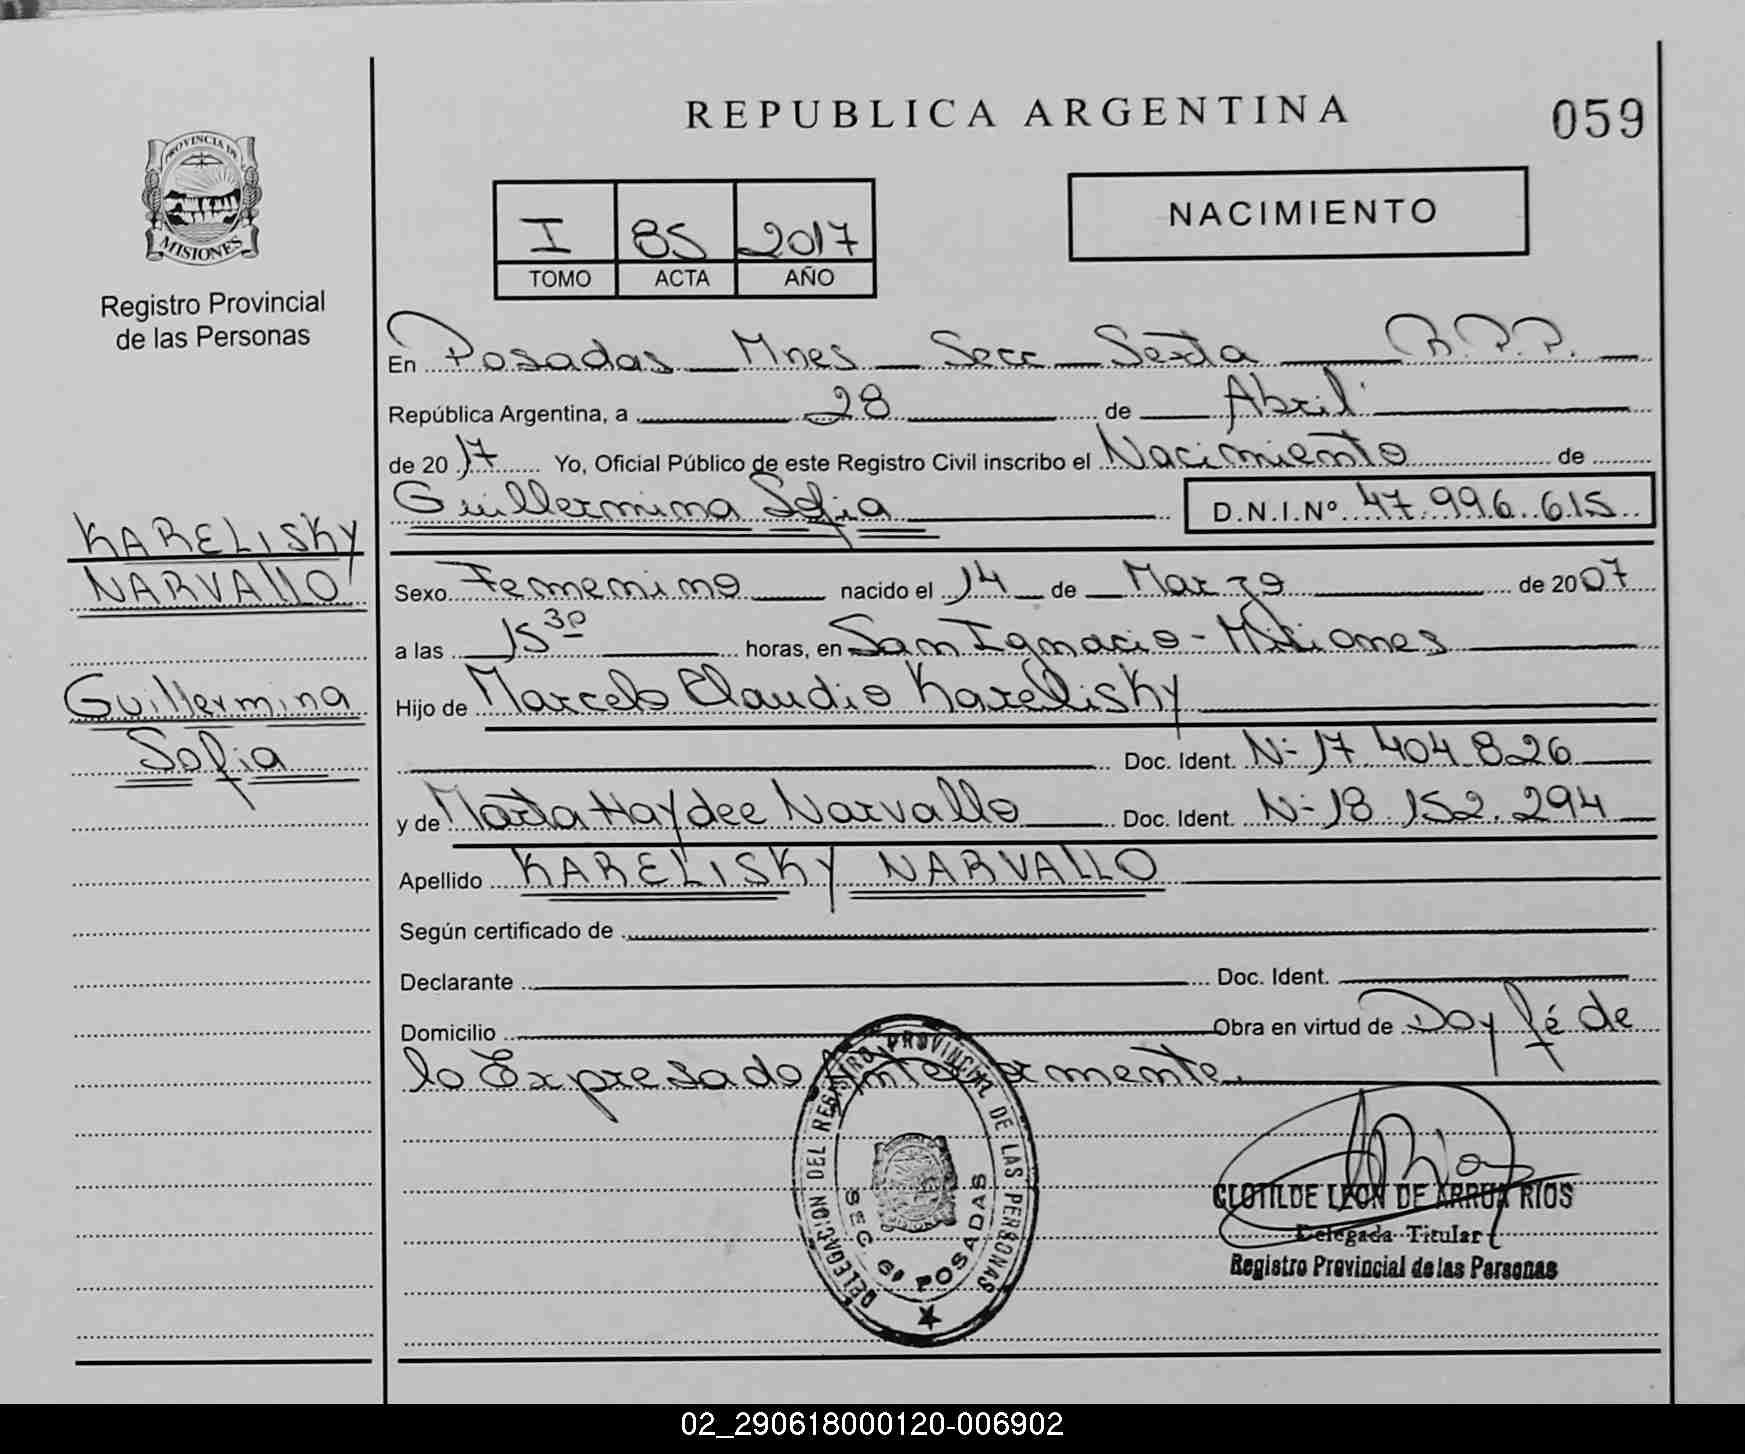 REPUBLICA ARGENTINA
059
PROVINCIA DE
MISIONES
Registro Provincial
de las Personas
I 85 2017
TOMO ACTA AÑO
NACIMIENTO
En Posadas Mnes Secc Sexta R.P.P.
República Argentina, a 28 de Abril
de 2017 Yo, Oficial Público de este Registro Civil inscribo el Nacimiento de
Guillermina Sofia D.N.I.Nº 47.996.615
KARELISKY
NARVALLO
Guillermina
Sofia
Sexo Femenino nacido el 14 de Marzo de 2007
a las 15 30 horas, en San Ignacio - Misiones
Hijo de Marcelo Claudio Karelisky
Doc. Ident. Nº 17 404 826
y de Marta Haydee Narvallo Doc. Ident. Nº 18.152.294
Apellido KARELISKY NARVALLO
Según certificado de
Declarante Doc. Ident.
Domicilio Obra en virtud de Doy fé de
lo Expresado Anteriormente.
DELEGACION DEL REGISTRO PROVINCIAL DE LAS PERSONAS
SEC. 6ª POSADAS
MISIONES
CLOTILDE LEON DE ARRUA RIOS
Delegada Titular
Registro Provincial de las Personas
02_290618000120-006902